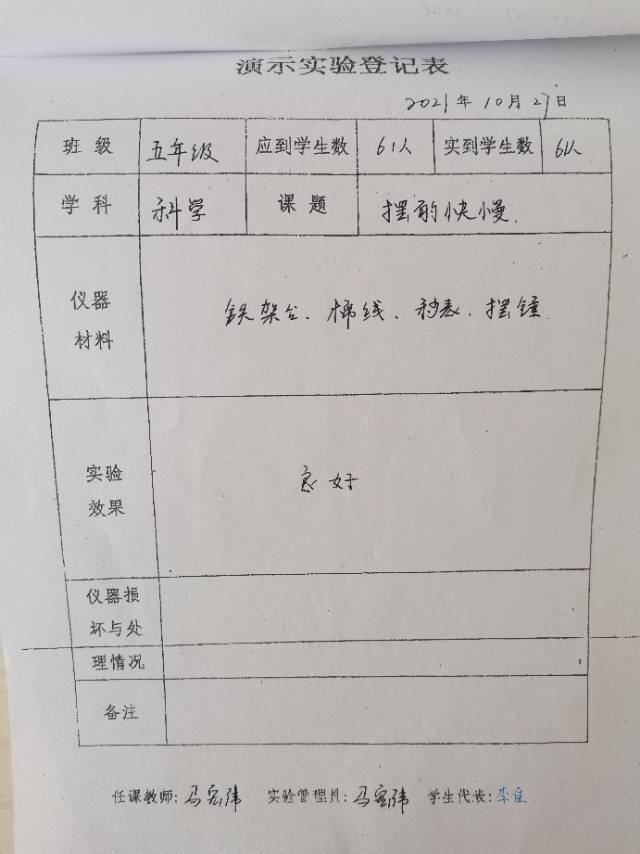 演示实验登记表
2021年10月27日
班级 五年级 应到学生数 61人 实到学生数 61人
学科 科学 课题 摆的快慢.
仪器
材料
铁架台、棉线、秒表、摆锤.
实验
效果
良好
仪器损
坏与处
理情况
备注
任课教师: 马 实验管理员: 马 学生代表: 李佳